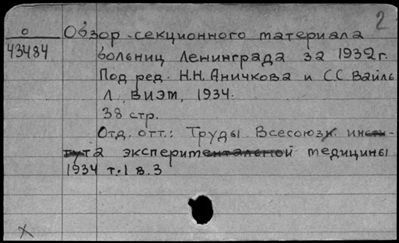 2
О
43484
Обзор секционного материала
больниц Ленинграда за 1932г.
Под ред. Н.Н. Аничкова и С.С Вайль
Л., ВИЭМ, 1934.
38 стр.
Отд. отт.: Труды Всесоюзн. инсти-
тута экспериментальной медицины
1934 т.1 в.3
X